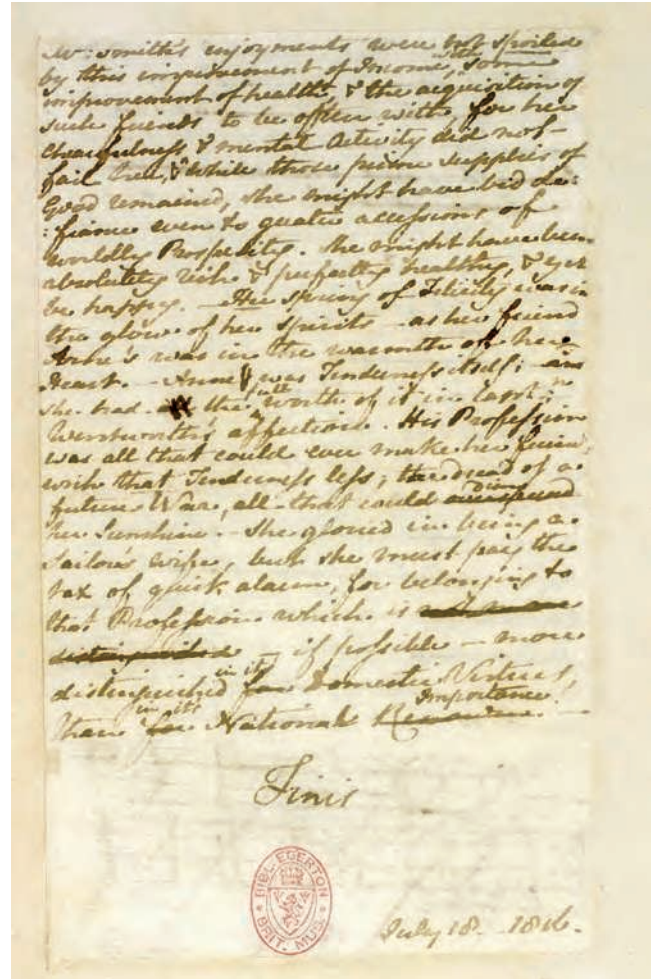 Mrs. Smith's enjoyments were not spoiled
by this improvement of Income, with some
improvement of health, & the acquisition of
such friends to be often with, for her
chearfulness & mental Activity did not
fail her, & while those prime supplies of
Good remained, she might have bid de:
:fiance even to greater accessions of
worldly Prosperity. She might have been
absolutely rich & perfectly healthy, & yet
be happy. — Her spring of Felicity was in
the glow of her Spirits — as her friend
Anne's was in the warmth of her
Heart. — Anne was Tenderness itself; — and
she had the full worth of it in Capt:n
Wentworth's affection. His Profession
was all that could ever make her friends
wish that Tenderness less; the dread of a
future War, all that could dim
her Sunshine. — She gloried in being a
Sailor's wife, but she must pay the
tax of quick alarm, for belonging to
that Profession which is not more
distinguished — if possible — more
distinguished in it's for Domestic Virtues,
than in it's for National Importance Renown. —
Finis
July 18. — 1816.
BIBL. EGERTON
BRIT. MUS.